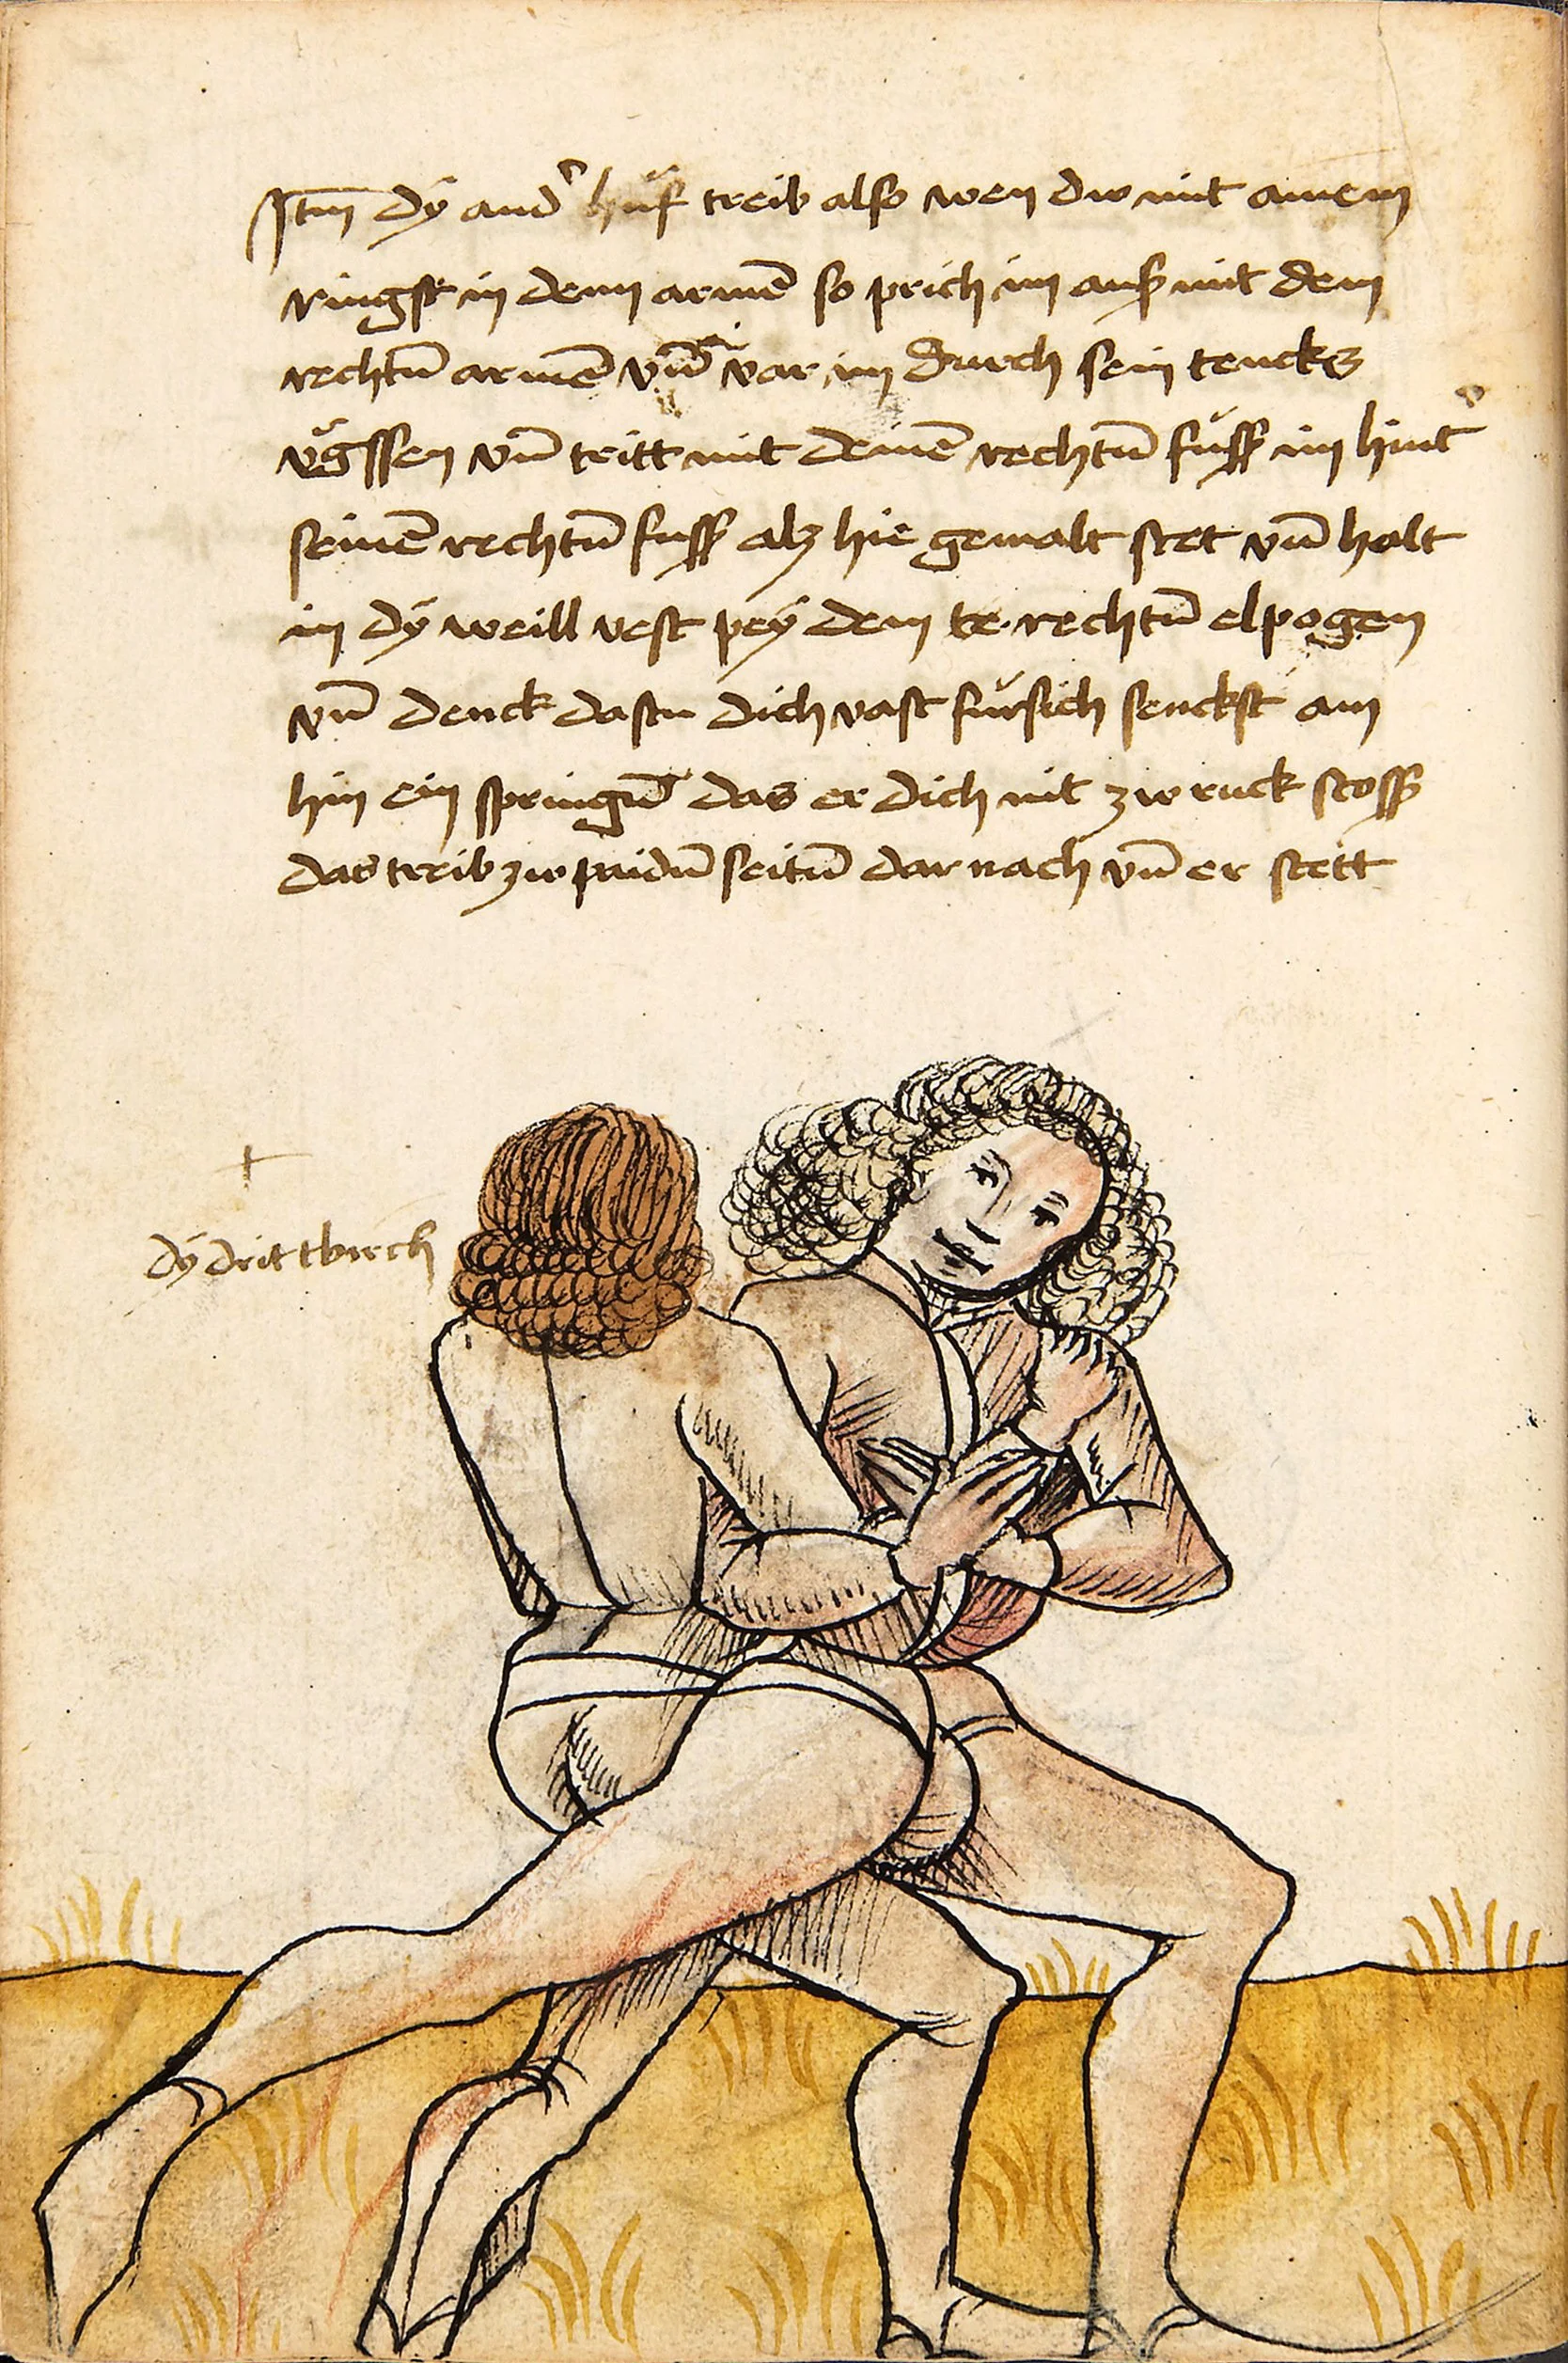 Itm dÿ and huf treib also wen du mit ainem
ringst in denn armen so prich im auß mit dem
rechtn̄ armen vnd var im durch sein tencks
vgssen vn̄ tritt mit deinen rechtn̄ fuss im hint
seinen rechtn̄ fuss alz hie gemalt stet vn̄ halt
in dÿ weill vest peÿ dem te rechtn̄ elpogen
vn̄ denck dastu dich vast fürsich senckst am
hin ein springn̄ das er dich nit zw ruck stoss
das treib zw paidn̄ seitn̄ dar nach vn̄ er stett
dÿ dritt bruch